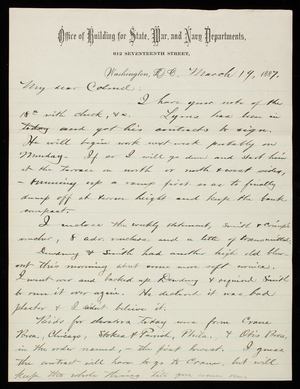 Office of Building for State, War, and Navy Departments,
612 SEVENTEENTH STREET,
Washington, D.C. March 19, 1887.
My dear Colonel:
I have your note of the
18th with check, &c. Lyons has been in
today and got his contracts to sign.
He will begin work next week probably on
Monday. If so I will go down and start him
at the terrace on north or north & west sides,
running up a ramp first so as to finally
dump off at terrace height and keep the bank
compact.
I enclose the weekly statement, Smith &
voucher, 8 adv. vouchers and a letter of transmittal.
Denning & Smith had another high old blow-
out this morning about some more soft cornice.
I went over and backed up Denning & required Smith
to run it over again. He declared it was bad
plaster & I don't believe it.
Bids for elevators today were from Crane
Bros., Chicago, Stokes & Parrish, Phila., & Otis Bros.,
in the order named, the first lowest. I guess
the contract will have to go to Crane, but will
keep the whole thing till you come on.